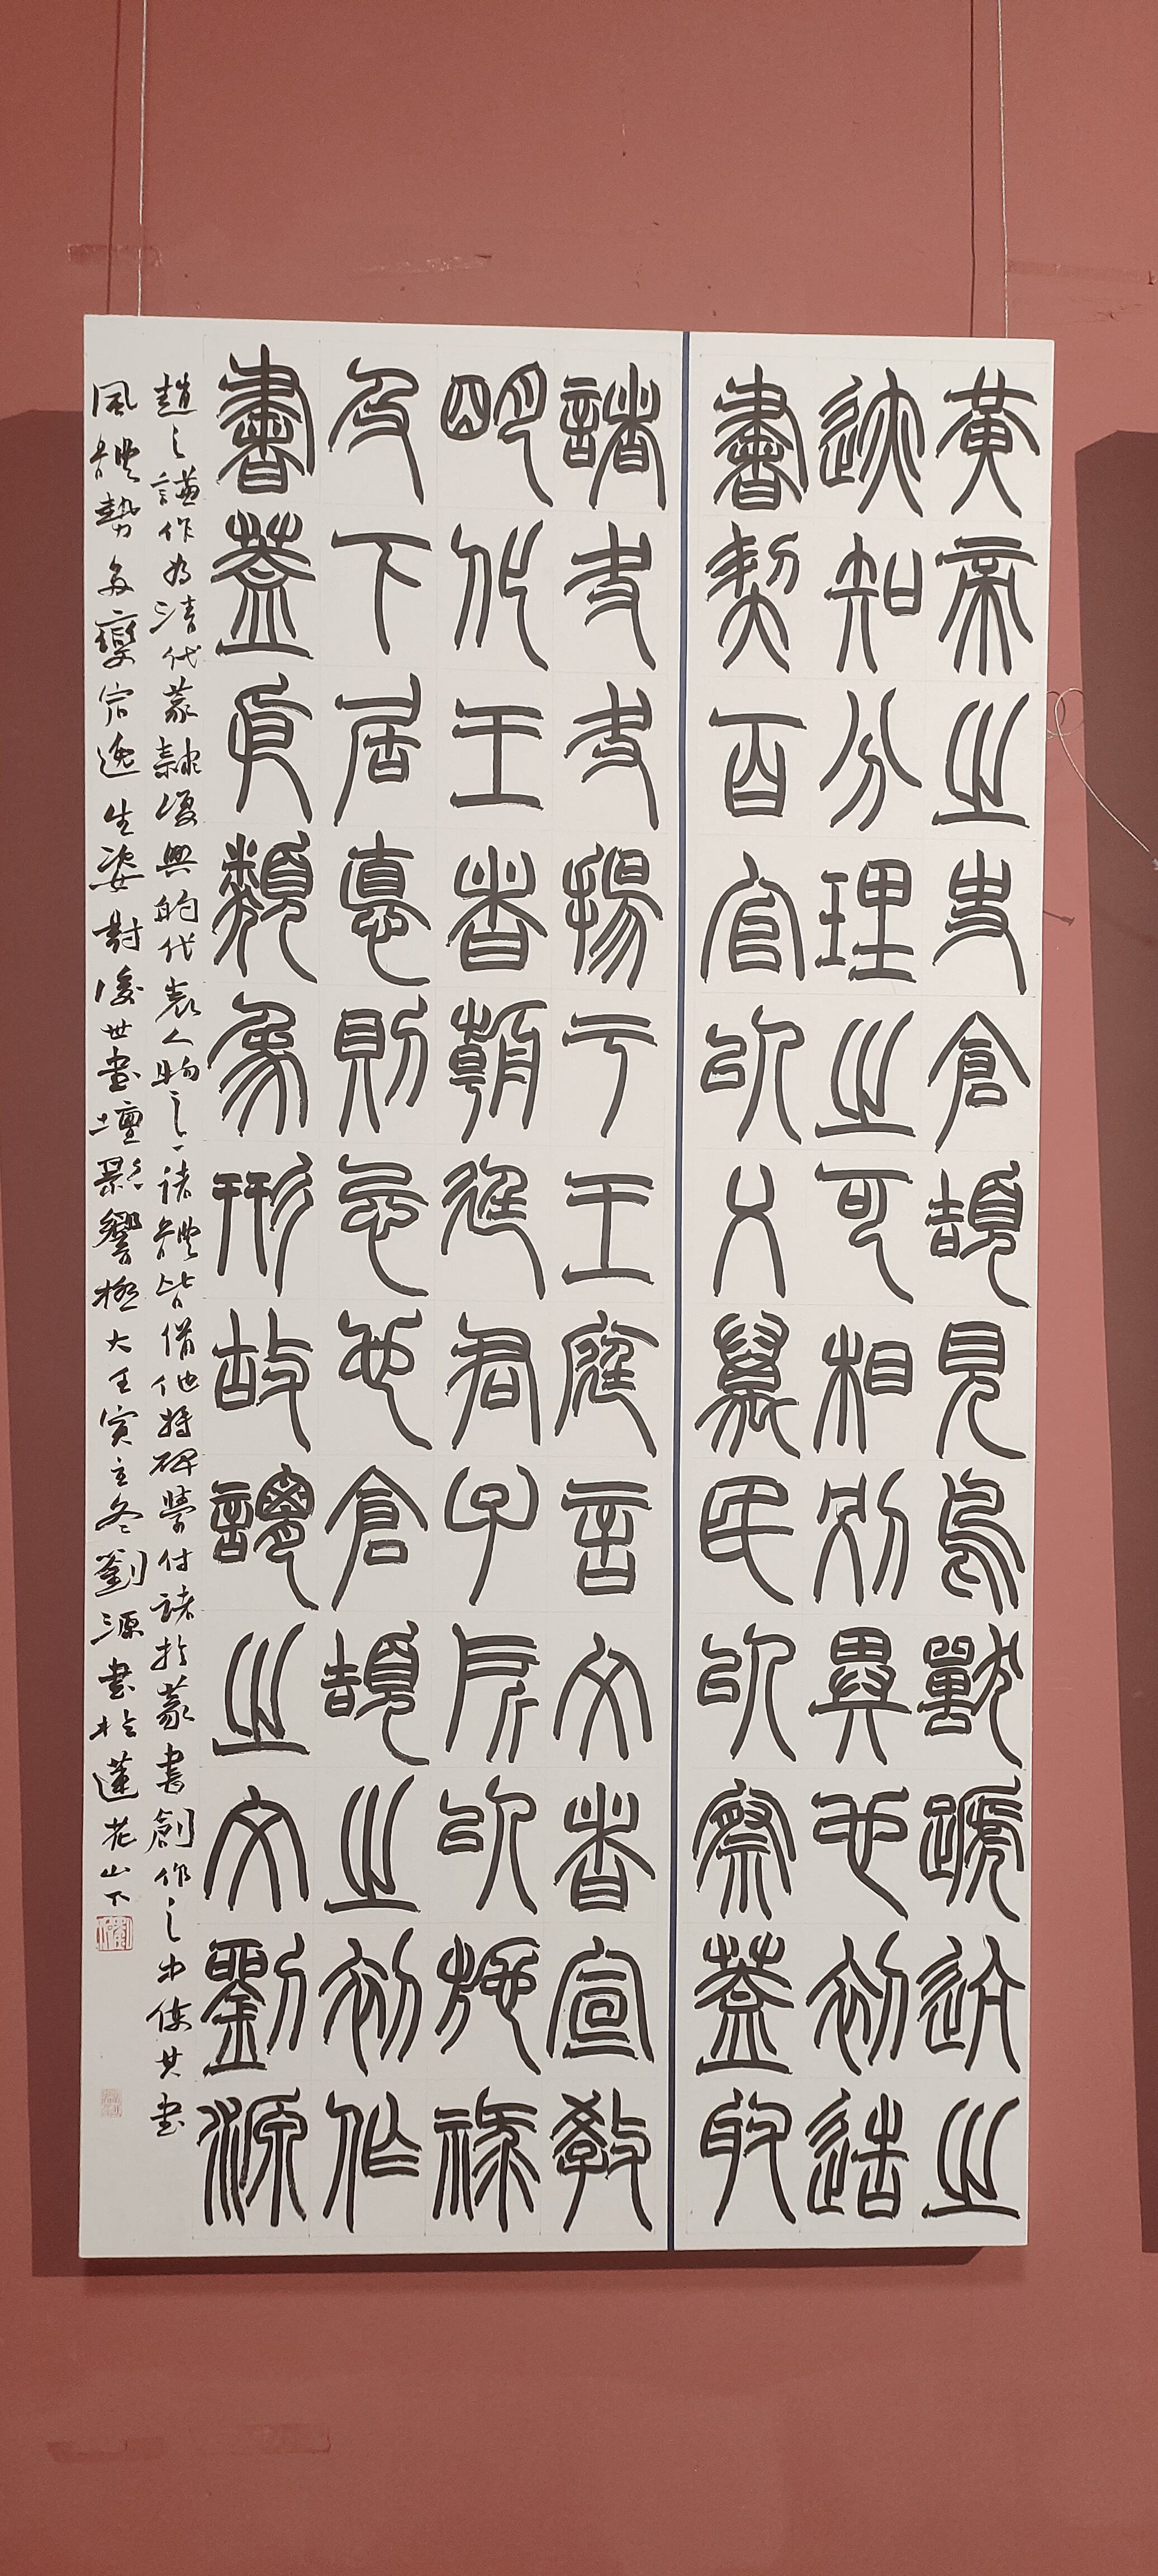 黃帝之史倉頡見鳥獸蹏迒之
迹知分理之可相別異也初造
書契百官以乂萬民以察蓋取
諸夬夬揚于王庭言文者宣教
明化王者朝廷君子所以施祿
及下居德則忌也倉頡之初作
書蓋依類象形故謂之文劉源
趙之謙作為清代篆隸復興的代表人物之一諸體皆備他將碑學付諸於篆書創作之中使其書
風體勢多變宕逸生姿對後世書壇影響極大壬寅立冬劉源書於蓮花山下